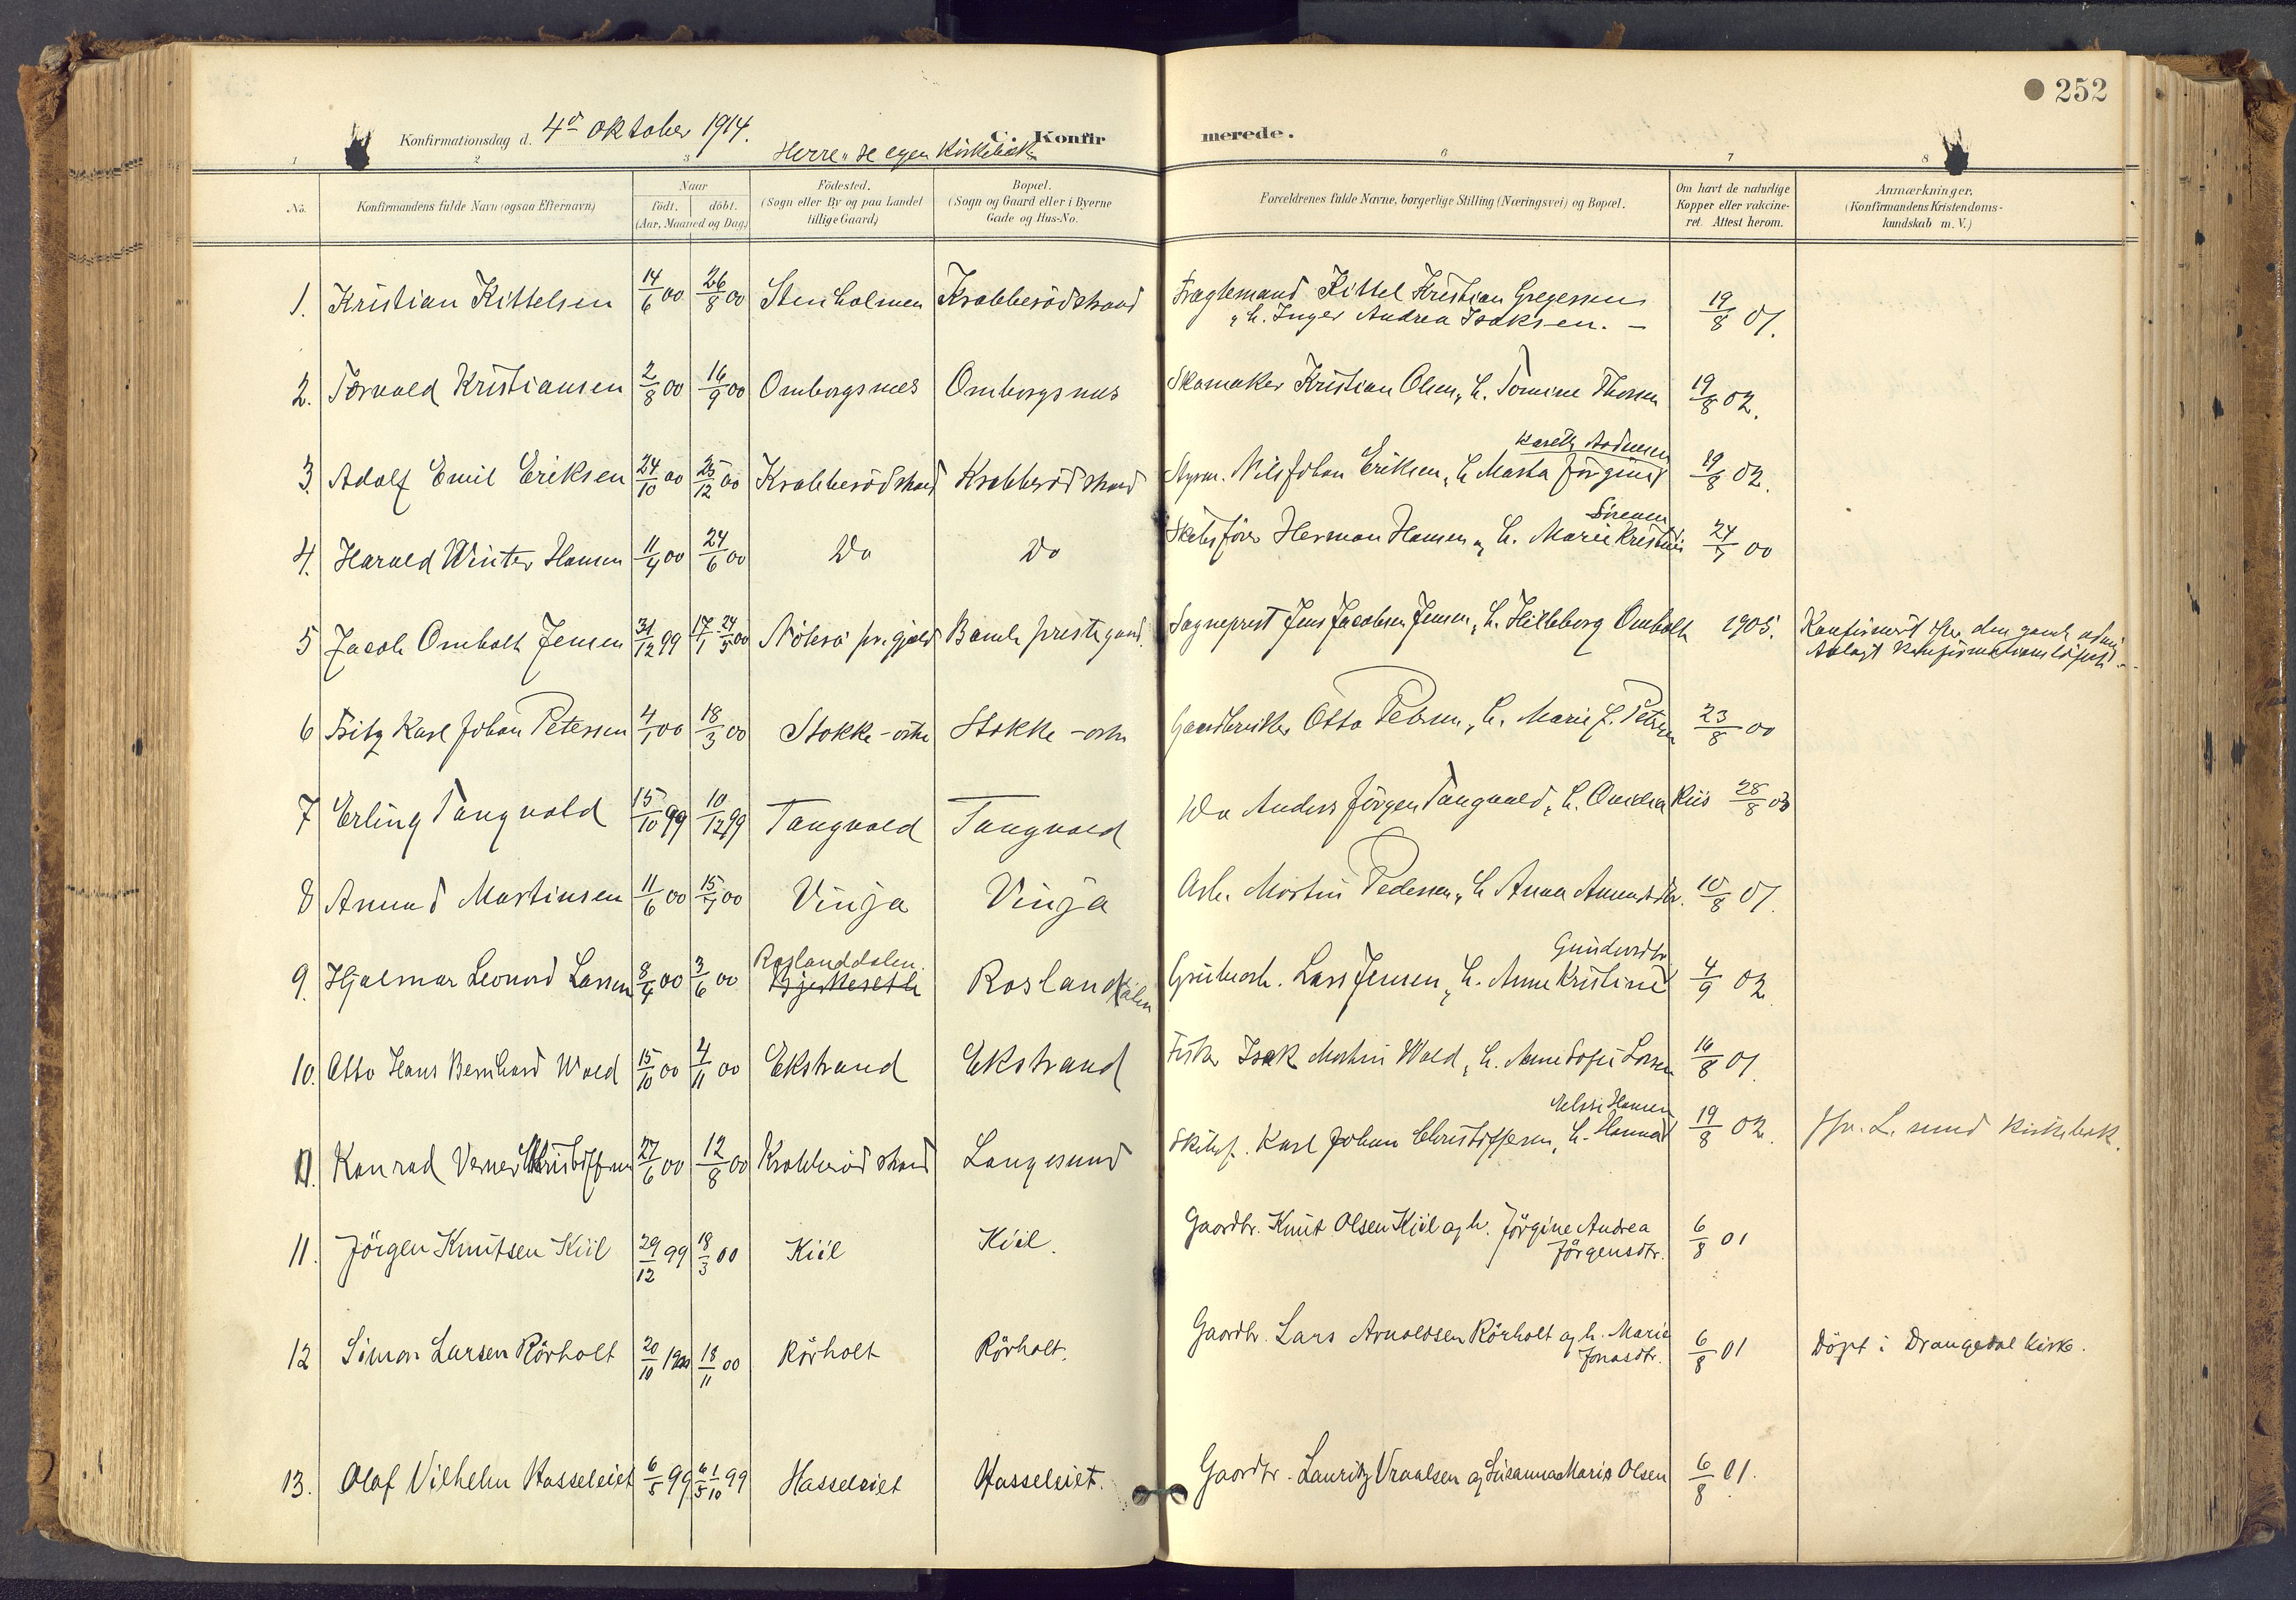 252
Konfirmationsdag d. 4de Oktober 1914.
C. Konfir merede.
Herre, se egen Kirkebok
1 2 3 6 7 8
No. Konfirmandens fulde Navn (ogsaa Efternavn)
Naar
födt. döbt.
(Aar, Maaned og Dag)
Födested.
(Sogn eller By og paa Landet
tillige Gaard)
Bopæl.
(Sogn og Gaard eller i Byerne
Gade og Hus-No.
Forældrenes fulde Navne, borgerlige Stilling (Næringsvei) og Bopæl.
Om havt de naturlige
Kopper eller vakcine-
ret. Attest herom.
Anmærkninger.
(Konfirmandens Kristendoms-
kundskab m. V.)
1. Kristian Kittelsen 14/6 00 26/8 00 Stenholmen Krabberödstrand Fragtemand Kittel Kristian Gregersen 19/8 01.
, h. Inger Andrea Isaksen. –
2. Torvald Kristiansen 2/8 00 16/9 00 Omborgsnes Omborgsnes Skomaker Kristian Olsen, h. Tomine Thorsen 19/8 02.
3. Adolf Emil Eriksen 24/10 00 25/12 00 Krabberödstrand Krabberödstrand Styrm. Nils Johan Eriksen, h. Marta Jörgine 19/8 02.
4. Harald Winter Hansen 11/4 00 24/6 00 Do Do Skibsförer Herman Hansen og h. Marie Kristine Sörensen 24/7 00
5 Jacob Omholt Jensen 31/12 99 17/1 24/5 00 pr.gjeld Bamle prestegaard. Sogneprest Jens Jacobsen Jensen, h. Hilleborg Omholt 1905. Konfirmert efter den
Avlagt konfirmationslöfte.
6 Fritz Karl Johan Petersen 4/1 00 18/3 00 Stokke-östre Stokke-östre Gaardbruker Otto Petersen, h. Marie J. Petersen 23/8 00
7 Erling Tangvald 15/10 99 10/12 99 Tangvald Tangvald Do Anders Jörgen Tangvald, h. Riis 28/8 03
8 Amund Martinsen 11/6 00 15/7 00 Vinja Vinja Arb. Martin Pedersen, h. Anna Amundsdtr. 10/8 01.
9. Hjalmar Leonard Larsen 8/4 00 3/6 00 Roslanddalen Roslanddalen Grubearb. Lars Jensen, h. Anne Kristine Gundersdtr. 4/9 02
10. Otto Hans Bernhard Wold 15/10 00 4/11 00 Ekstrand Ekstrand Fisker Isak Martin Wold, h. Anne Sofie Larsen 16/8 01.
Konrad Verner Kristoffersen 27/6 00 12/8 00 Krabberöd strand Langesund Skibsf. Karl Johan Christoffersen, h. Hanna Hansen 19/8 02. Jfr. L.sund kirkebok.
11. Jörgen Knutsen Kiil 29/12 99 18/3 00 Kiil Kiil. Gaardbr. Knut Olsen Kiil og h. Jörgine Andrea 6/8 01
Jörgensdtr.
12 Simon Larsen Rörholt 20/10 1900 18/11 00 Rörholt Rörholt. Gaardbr. Lars Arnoldsen Rörholt og h. Marie 6/8 01 Döpt i Drangedal kirke.
Jonasdtr.
13. Olaf Vilhelm Hasseleiet 6/5 99 6/5 1/10 99 Hasseleiet Hasseleiet. Gaardbr. Lauritz Vraalsen og Susanna Marie Olsen 6/8 01.